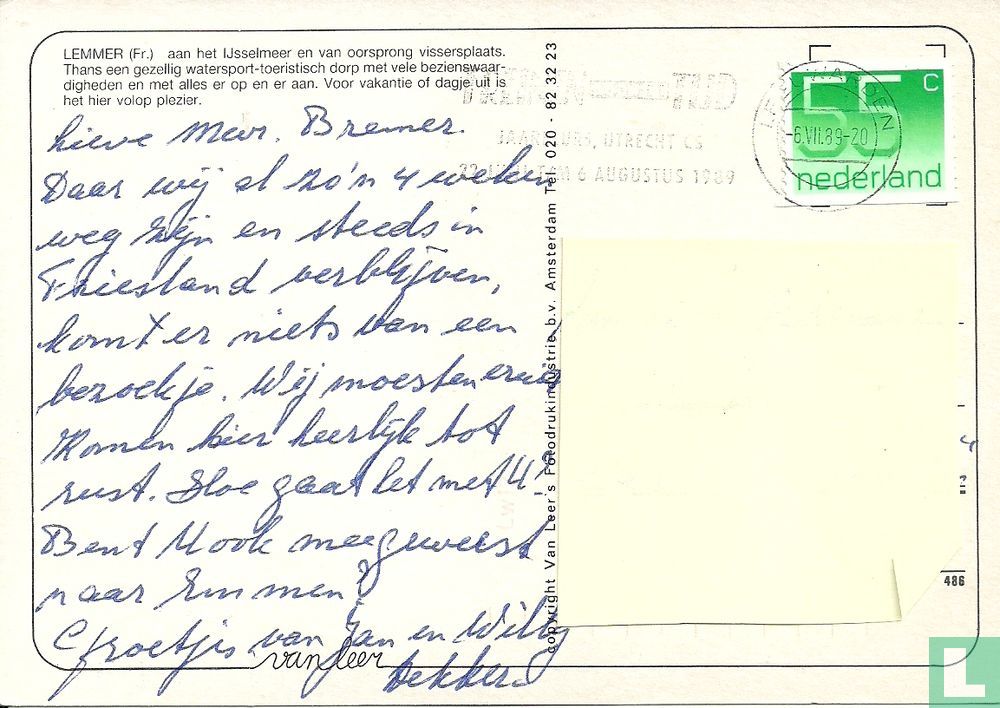 LEMMER (Fr.) aan het IJsselmeer en van oorsprong vissersplaats.
Thans een gezellig watersport-toeristisch dorp met vele bezienswaar-
digheden en met alles er op en er aan. Voor vakantie of dagje uit is
het hier volop plezier.
Lieve Mevr. Bremer.
Daar wij al zo'n 4 weken
weg zijn en steeds in
Friesland verblijven,
komt er niets van een
bezoekje. Wij moesten en
Komen hier heerlijk tot
rust. Hoe gaat het met U?
Bent U ook meegeweest
naar Emmen?
Groetjes van Jan en Willy
Dekker.
van leer
copyright Van Leer's Fotodrukindustrie b.v. Amsterdam Tel. 020 - 82 32 23
JAARBEURS, UTRECHT CS
6 AUGUSTUS 1989
-6.VII.89-20
55 C
nederland
486
L